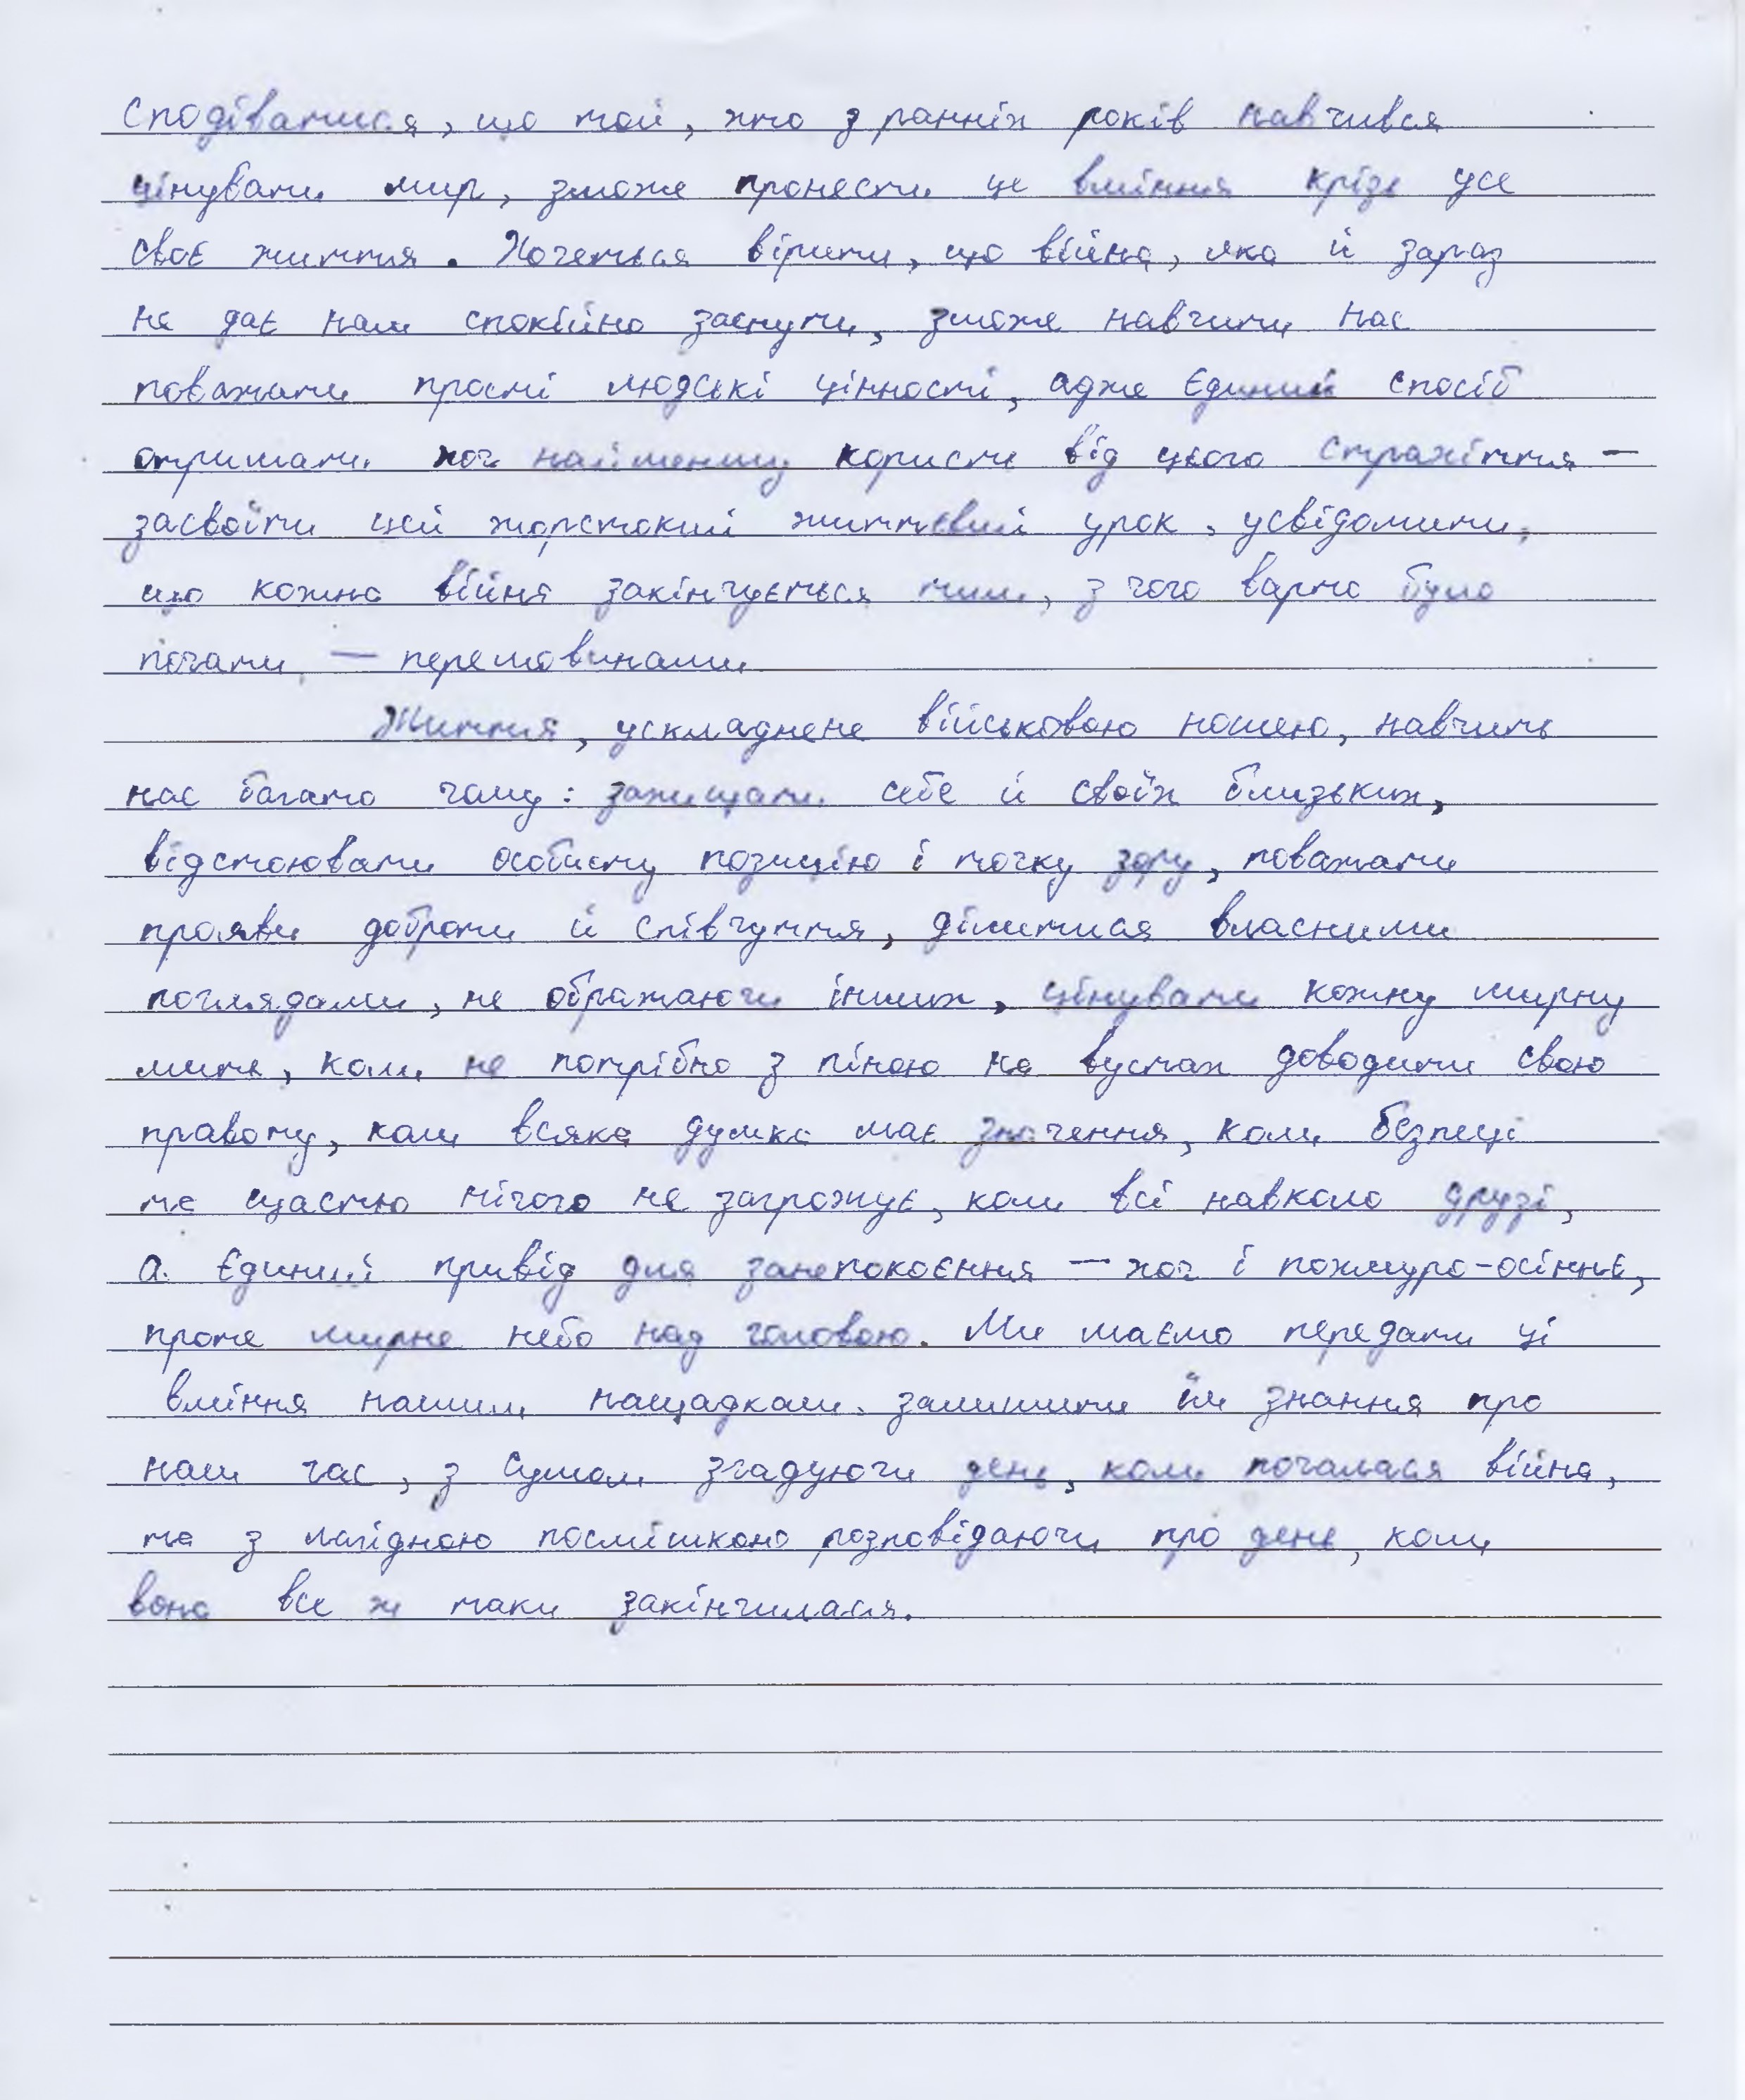 сподіватися, що той, хто з ранніх років навчився
цінувати мир, зможе пронести це вміння крізь усе
своє життя. Хочеться вірити, що війна, яка й зараз
не дає нам спокійно заснути, зможе навчити нас
поважати прості людські цінності, адже єдиний спосіб
отримати хоч найменшу користь від цього страхіття —
засвоїти цей жорстокий життєвий урок, усвідомити,
що кожна війна закінчується тим, з чого варто було
почати, — перемовинами.
Життя, ускладнене військовою ношею, навчить
нас багато чому: захищати себе й своїх близьких,
відстоювати особисту позицію і точку зору, поважати
прояви доброти й співчуття, ділитися власними
поглядами, не ображаючи інших, цінувати кожну мирну
мить, коли не потрібно з піною на вустах доводити свою
правоту, коли всяка думка має значення, коли безпеці
та щастю нічого не загрожує, коли всі навколо друзі,
а єдиний привід для занепокоєння — хоч і похмуро-осіннє,
проте мирне небо над головою. Ми маємо передати ці
вміння нашим нащадкам, залишити їм знання про
наш час, з сумом згадуючи день, коли почалася війна,
та з лагідною посмішкою розповідаючи про день, коли
вона все ж таки закінчилася.